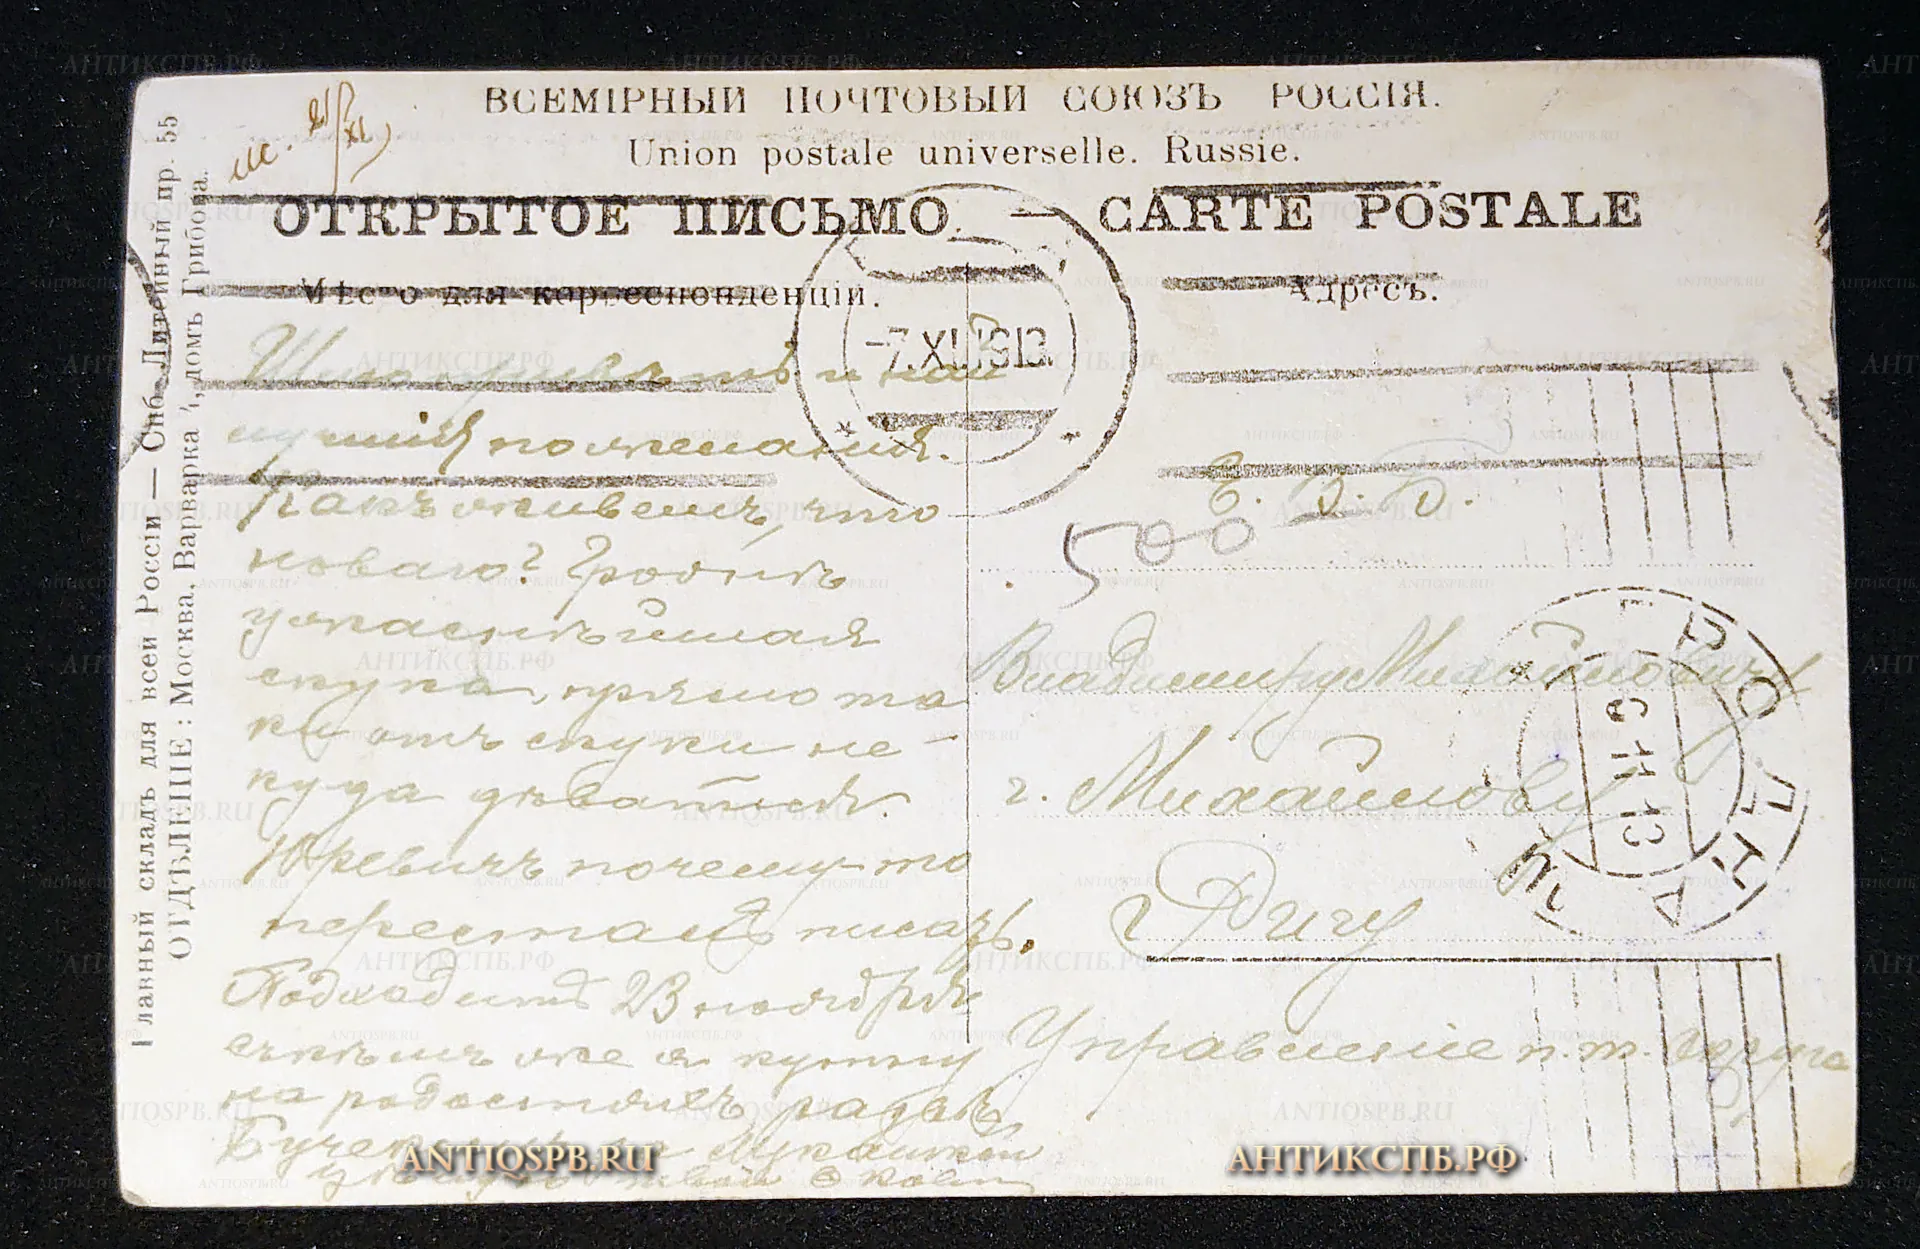 ВСЕМІРНЫЙ ПОЧТОВЫЙ СОЮЗЪ РОССІЯ.
Union postale universelle. Russie.
ОТКРЫТОЕ ПИСЬМО. — CARTE POSTALE
Мѣсто для корреспонденціи.
Адресъ.
Главный складъ для всей Россіи — Спб. Литейный пр. 55
ОТДѢЛЕНІЕ: Москва, Варварка, домъ Грибова.
-7.XI.1913
Шлю привѣтъ и наи
лучшія пожеланія.
Какъ живешь, что
новаго? Гродяк
скука, прямо та
ки отъ скуки не-
куда дѣваться.
Юревичъ почему-то
пересталъ писать.
Подходитъ 23 ноября
съ кѣмъ же я кучу
на радостяхъ
твой
500
Е. В. Б.
Владимиру Михайловичу
г. Михайлову
г Ригу
Управленіе п. т. округа
6 11 13
ANTIQSPB.RU
АНТИКСПБ.РФ